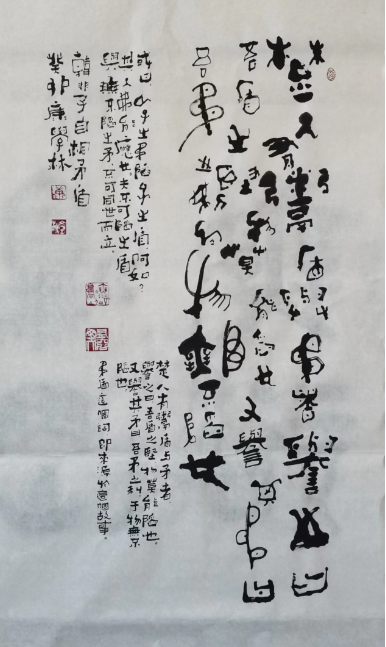 楚人有鬻盾與矛者譽之曰
吾盾之堅物莫能陷也又譽其矛曰
吾矛之利於物無不陷也
或曰以子之矛陷子之盾何如?
其人弗能應也夫不可陷之盾
與無不陷之矛不可同世而立
韓非子自相矛盾
癸卯康學林
楚人有鬻盾与矛者,
譽之曰吾盾之堅物莫能陷也,
又譽其矛曰吾矛之利于物無不
陷也
矛盾這個詞即來源於這個故事.